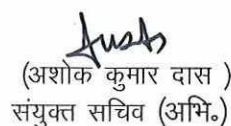 (अशोक कुमार दास )
संयुक्त सचिव (अभि॰)